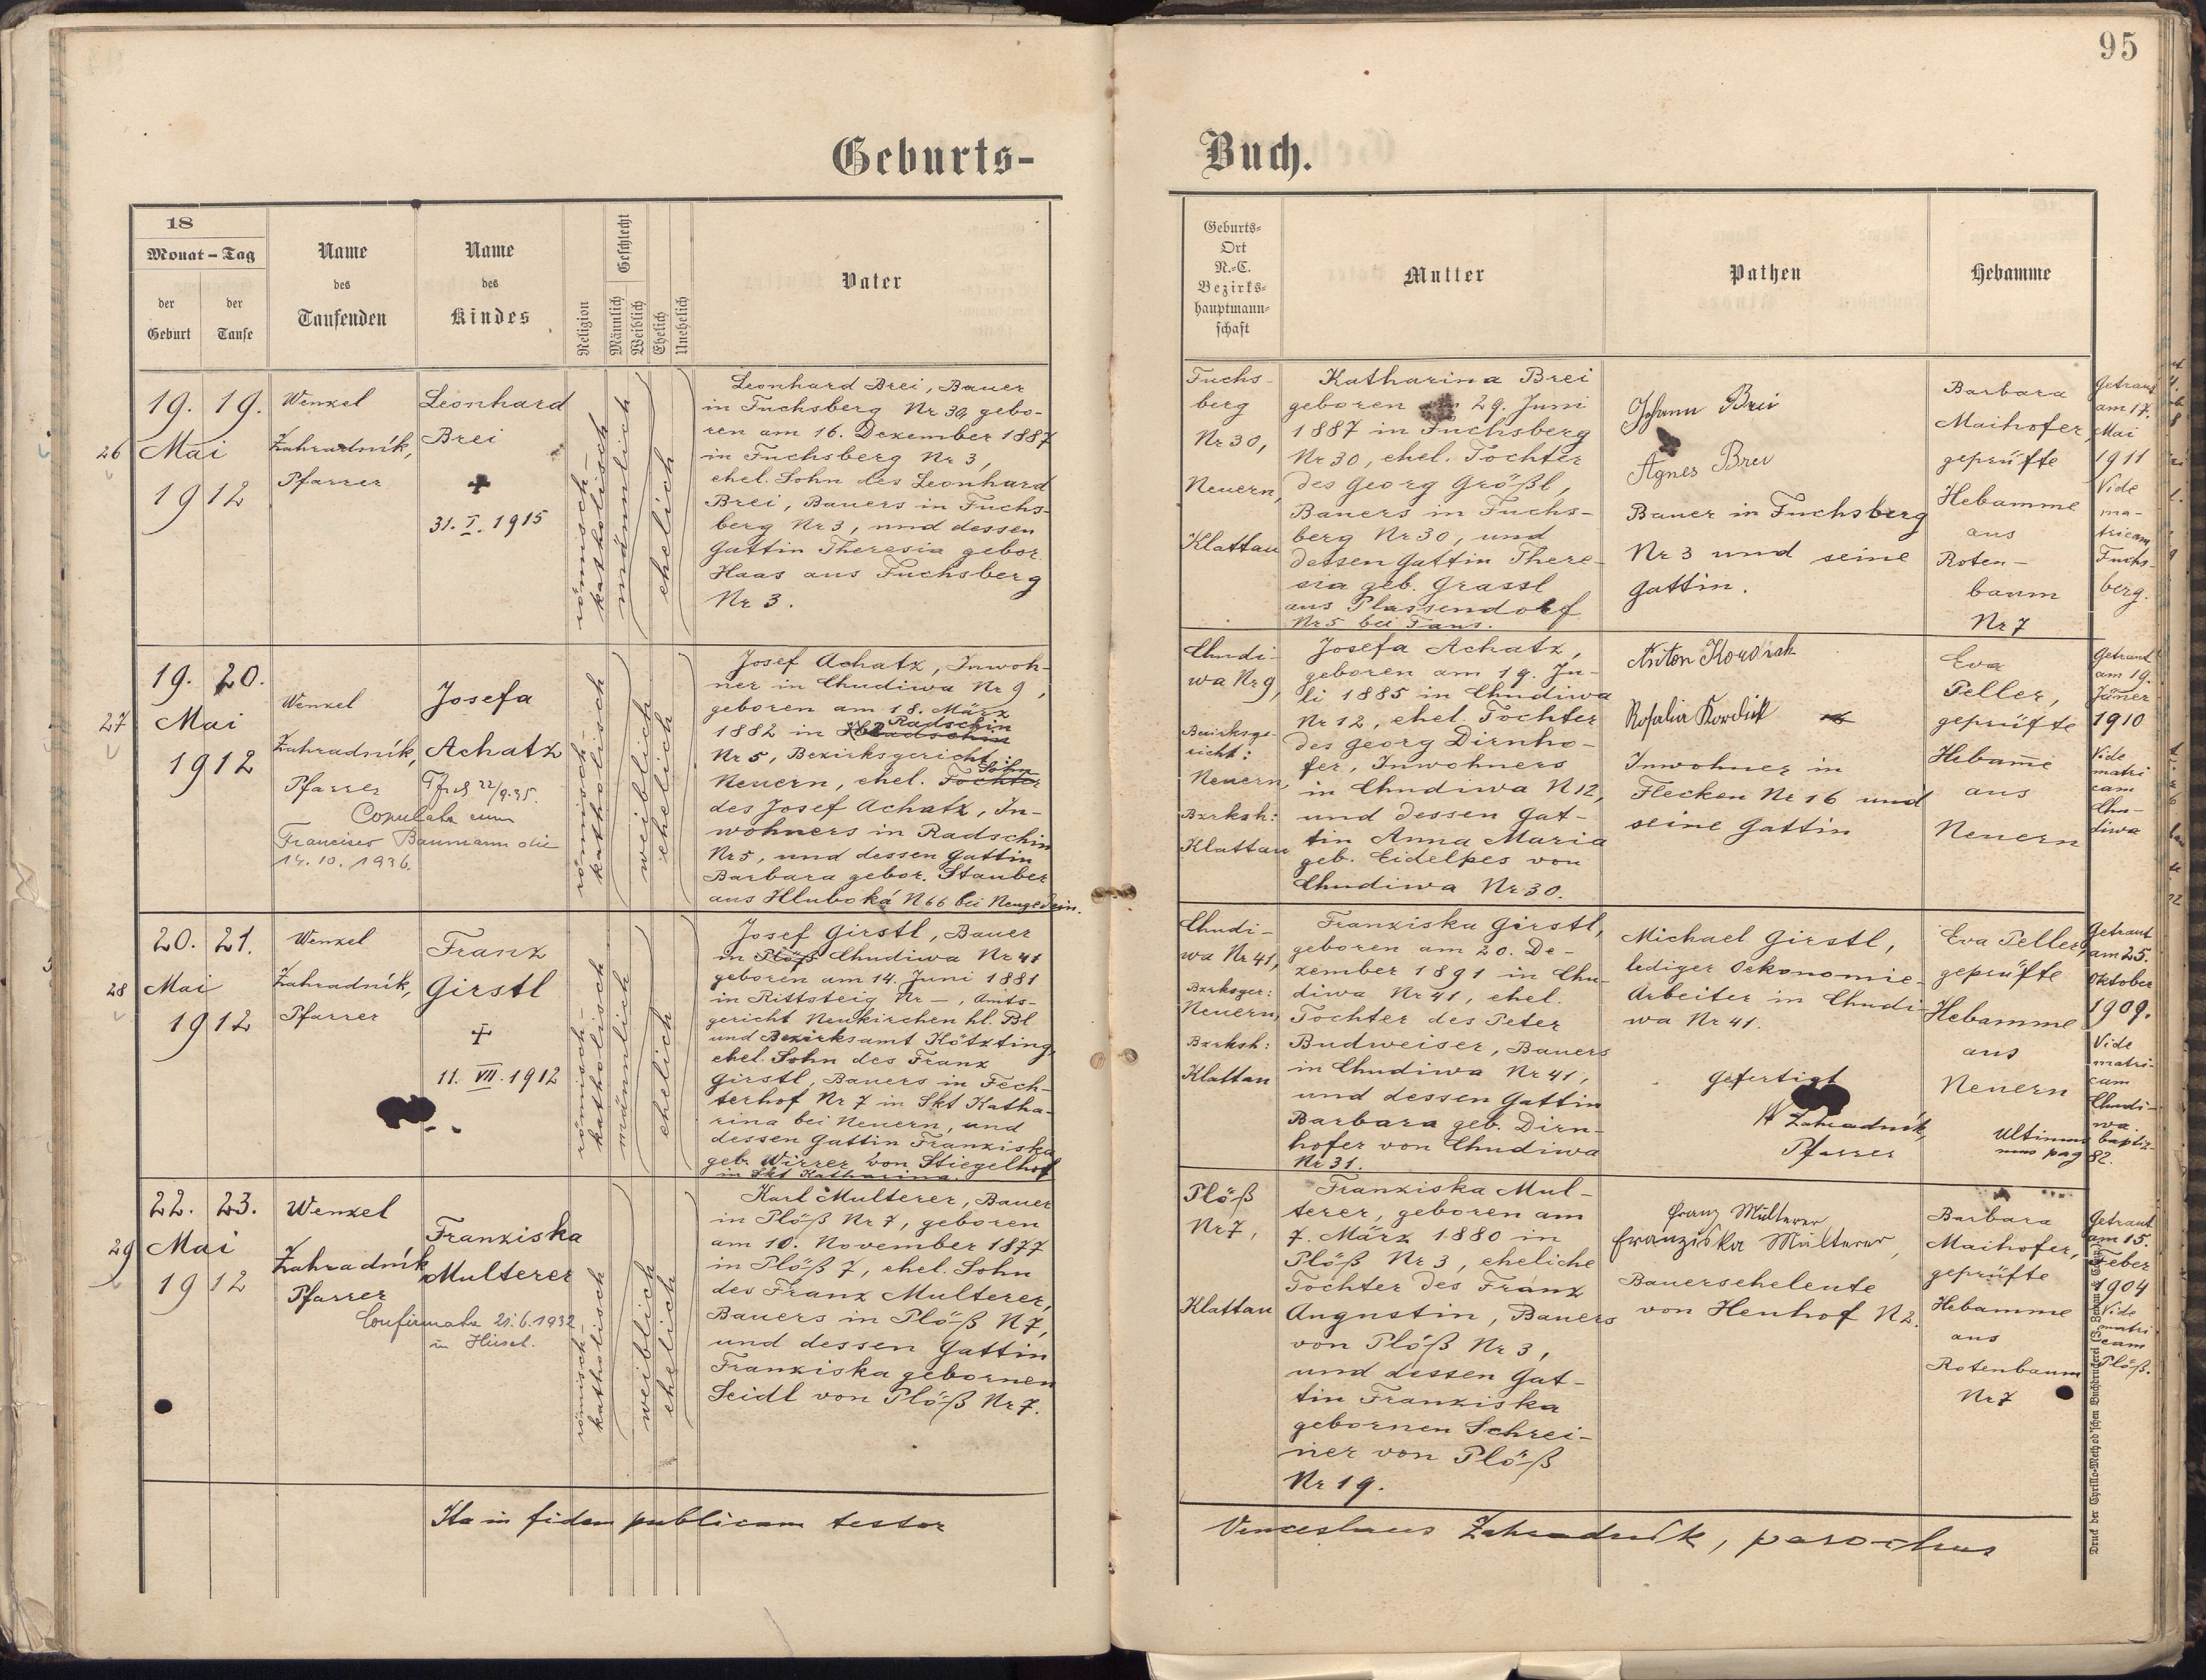 95
Geburts-
Buch.
18
Monat - Tag
der
Geburt
der
Taufe
Name
des
Taufenden
Name
des
Kindes
Religion
Geschlecht
Männlich
Weiblich
Ehelich
Unehelich
Vater
Geburts-
Ort
N.-C.
Bezirks-
hauptmann-
schaft
Mutter
Pathen
Hebamme
26
19. 19.
Mai
1912
Wenzel
Zahradník,
Pfarrer
Leonhard
Brei
+
31. I. 1915
römisch-
katholisch
männlich
ehelich
Leonhard Brei, Bauer
in Fuchsberg Nr 30, gebo-
ren am 16. Dezember 1887
in Fuchsberg Nr 3,
ehel. Sohn des Leonhard
Brei, Bauers in Fuchs-
berg Nr 3, und dessen
Gattin Theresia gebor.
Haas aus Fuchsberg
Nr 3.
Fuchs-
berg
Nr 30,
Neuern,
Klattau
Katharina Brei
geboren am 29. Juni
1887 in Fuchsberg
Nr 30, ehel. Tochter
des Georg Größl,
Bauers in Fuchs-
berg Nr 30, und
dessen Gattin There-
sia geb. Grassl
aus Plassendorf
Nr 5 bei Taus.
Johann Brei
Agnes Brei
Bauer in Fuchsberg
Nr 3 und seine
Gattin.
Barbara
Maihofer,
geprüfte
Hebamme
aus
Roten-
baum
Nr 7
Getraut
am 17.
Mai
1911
Vide
ma-
tricam
Fuchs-
berg.
27
19. 20.
Mai
1912
Wenzel
Zahradník,
Pfarrer
Josefa
Achatz
22/9.35.
Copulata cum
Francisco Baumann die
14. 10. 1936.
römisch-
katholisch
weiblich
ehelich
Josef Achatz, Inwoh-
ner in Chudiwa Nr 9,
geboren am 18. März
Radschin
1882 in
Nr 5, Bezirksgericht
Sohn
Neuern, ehel. Tochter
des Josef Achatz, In-
wohners in Radschin
Nr 5, und dessen Gattin
Barbara gebor. Stauber
aus Hluboká N 66 bei Neugedein.
Chudi-
wa Nr 9,
Bezirksge-
richt:
Neuern,
Bzrksh:
Klattau
Josefa Achatz,
geboren am 19. Ju-
li 1885 in Chudiwa
Nr 12, ehel. Tochter
des Georg Dirnho-
fer, Inwohners
in Chudiwa N 12,
und dessen Gat-
tin Anna Maria
geb. Eidelpes von
Chudiwa Nr 30.
Anton
Rosalia
Inwohner in
Flecken Nr 16 und
seine Gattin
Eva
Peller,
geprüfte
Hebam̅e
aus
Neuern
Getraut
am 19.
Jänner
1910
Vide
matri
cam
Chu-
diwa
28
20. 21.
Mai
1912
Wenzel
Zahradník,
Pfarrer
Franz
Girstl
+
11. VII. 1912
römisch-
katholisch
männlich
ehelich
Josef Girstl, Bauer
in Plöß Chudiwa Nr 41
geboren am 14. Juni 1881
in Rittsteig Nr —, Amts-
gericht Neukirchen hl. Bl
und Bezirksamt Kötzting,
ehel. Sohn des Franz
Girstl, Bauers in Fech-
terhof Nr 7 in Skt Katha-
rina bei Neuern, und
dessen Gattin Franziska
geb. Wirrer von Stiegelhof
in Skt Katharina.
Chudi-
wa Nr 41,
Bzrksger:
Neuern,
Bzrksh:
Klattau
Franziska Girstl,
geboren am 20. De-
zember 1891 in Chu-
diwa Nr 41, ehel.
Tochter des Peter
Budweiser, Bauers
in Chudiwa Nr 41,
und dessen Gattin
Barbara geb. Dirn-
hofer von Chudiwa
Nr 31.
Michael Girstl,
lediger Oekonomie-
Arbeiter in Chudi-
wa Nr 41.
Gefertigt
W Zahradník,
Pfarrer
Eva Peller,
geprüfte
Hebamme
aus
Neuern
Getraut
am 25.
Oktober
1909.
Vide
matri-
cam
Chudi-
wa.
Ultimus baptiz-
mus pag 82.
29
22. 23.
Mai
1912
Wenzel
Zahradník
Pfarrer
Franziska
Multerer
Confirmata 21.6.1932
in
römisch-
katholisch
weiblich
ehelich
Karl Multerer, Bauer
in Plöß Nr 7, geboren
am 10. November 1877
in Plöß 7, ehel. Sohn
des Franz Multerer,
Bauers in Plöß N 7,
und dessen Gattin
Franziska gebornen
Seidl von Plöß Nr 7.
Plöß
Nr 7,
Klattau
Franziska Mul-
terer, geboren am
7. März 1880 in
Plöß Nr 3, eheliche
Tochter des Franz
Augustin, Bauers
von Plöß Nr 3,
und dessen Gat-
tin Franziska
gebornen Schrei-
ner von Plöß
Nr 19.
Franz Multerer
Franziska Multerer,
Bauerseheleute
von Heuhof N 2.
Barbara
Maihofer,
geprüfte
Hebamme
aus
Rotenbaum
Nr 7
Getraut
am 15.
Feber
1904
Vide
matri
cam
Plöß.
Ita in fidem publicam testor
Venceslaus Zahradník, parochus